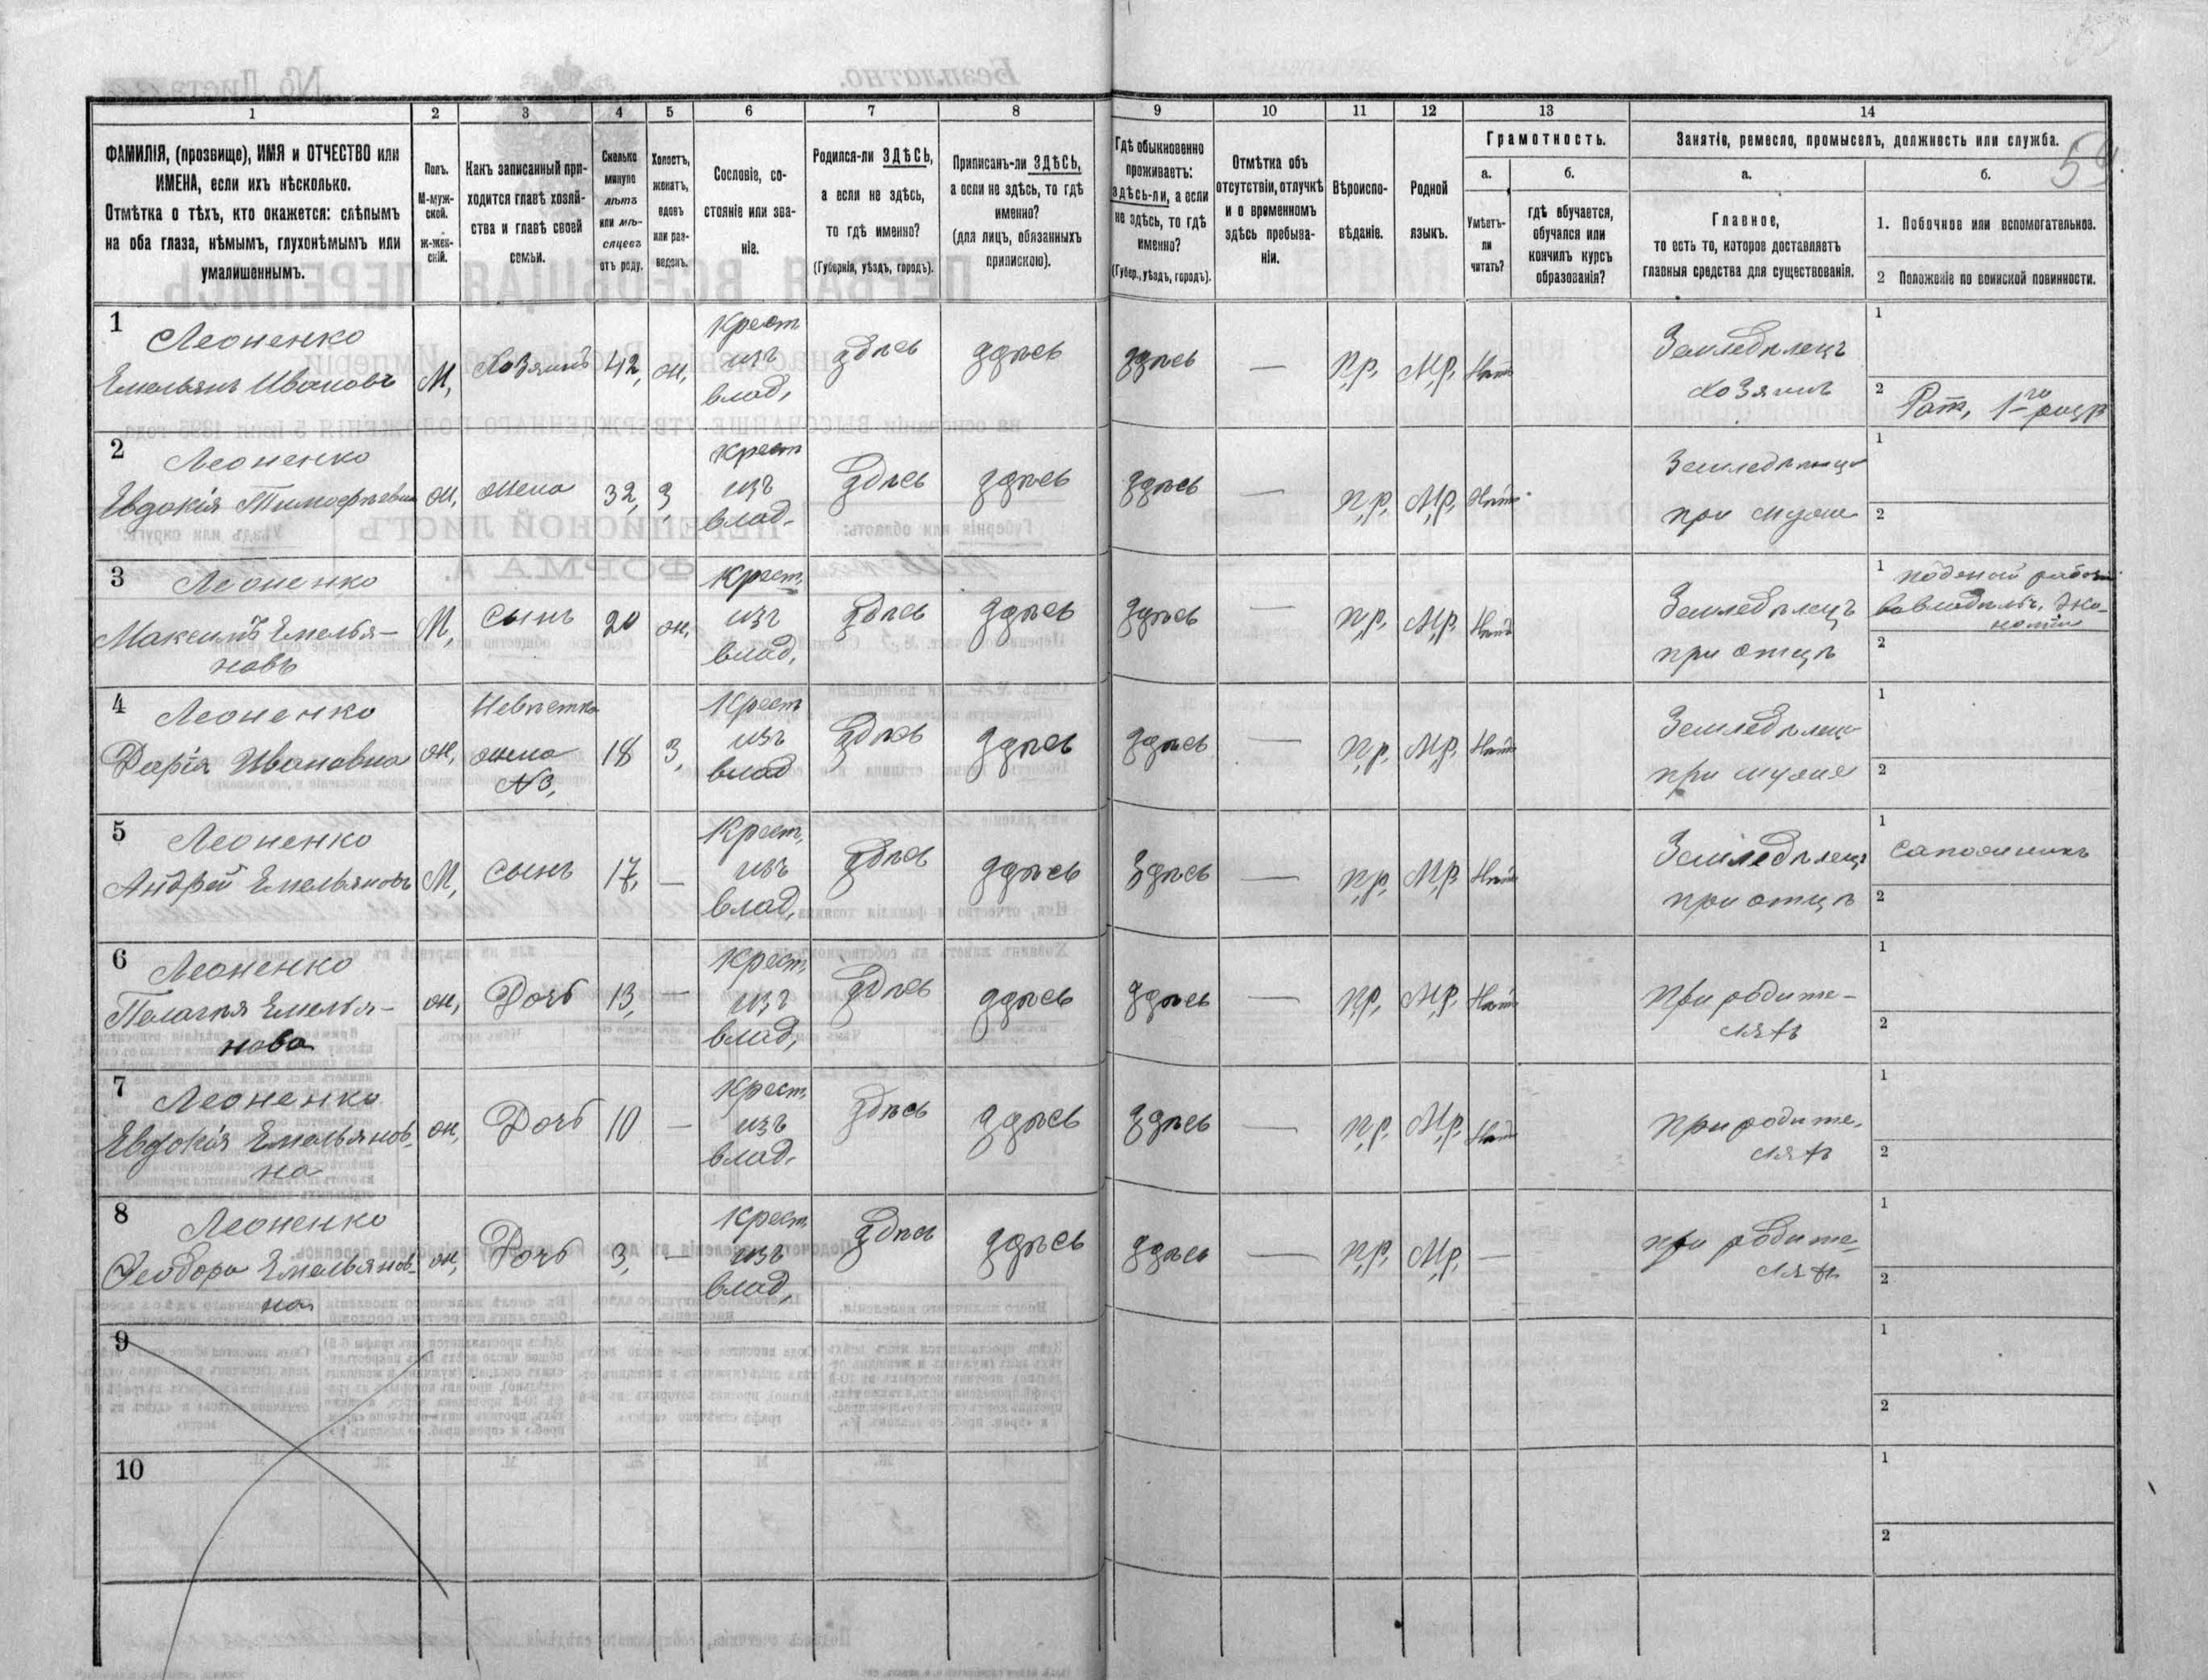 Безплатно.
№ Листа
1 2 3 4 5 6 7 8 9 10 11 12 13 14
ФАМИЛІЯ, (прозвище), ИМЯ и ОТЧЕСТВО или
ИМЕНА, если ихъ нѣсколько.
Отмѣтка о тѣхъ, кто окажется: слѣпымъ
на оба глаза, нѣмымъ, глухонѣмымъ или
умалишеннымъ.
Полъ.
М-муж-
ской.
ж-жен-
скій.
Какъ записанный при-
ходится главѣ хозяй-
ства и главѣ своей
семьи.
Сколько
минуло
лѣтъ
или мѣ-
сяцевъ
отъ роду.
Холостъ,
женатъ,
вдовъ
или раз-
веденъ.
Сословіе, со-
стояніе или зва-
ніе.
Родился-ли ЗДѢСЬ,
а если не здѣсь,
то гдѣ именно?
(Губернія, уѣздъ, городъ).
Приписанъ-ли ЗДѢСЬ,
а если не здѣсь, то гдѣ
именно?
(для лицъ, обязанныхъ
припискою).
Гдѣ обыкновенно
проживаетъ:
здѣсь-ли, а если
не здѣсь, то гдѣ
именно?
(Губер., уѣздъ, городъ).
Отмѣтка объ
отсутствіи, отлучкѣ
и о временномъ
здѣсь пребыва-
ніи.
Вѣроиспо-
вѣданіе.
Родной
языкъ.
Грамотность.
а.
Умѣетъ-
ли
читать?
б.
гдѣ обучается,
обучался или
кончилъ курсъ
образованія?
Занятіе, ремесло, промыселъ, должность или служба.
59
а.
Главное,
то есть то, которое доставляетъ
главныя средства для существованія.
б.
1. Побочное или вспомогательное.
2 Положеніе по воинской повинности.
1
Леоненко
Емельянъ Ивановъ
М,
Хозяинъ
42,
ж,
Крест
изъ
влад,
здѣсь
здѣсь
здѣсь
—
Пр,
М,р,
Нѣтъ
Земледѣлецъ
хозяинъ
1
2
Рат, 1-го разр
2
Леоненко
Евдокія Тимофѣевна
ж,
жена
32,
З,
Крест
изъ
влад.
здѣсь
здѣсь
здѣсь
—
Пр,
М,р,
Нѣтъ
Земледѣлица
при мужѣ
1
2
3
Леоненко
Максимъ Емелья-
новъ
М,
сынъ
20
ж,
Крест,
изъ
влад,
здѣсь
здѣсь
здѣсь
—
Пр,
М,р,
Нѣтъ
Земледѣлецъ
при отцѣ
1
2
4
Леоненко
Дарія Ивановна
ж,
Невѣстка
жена
№3,
18
З,
Крест
изъ
влад
здѣсь
здѣсь
здѣсь
—
Пр,
М,р,
Нѣтъ
при мужѣ
1
2
5
Леоненко
Андрей Емельяновъ
М,
сынъ
17,
—
Крест,
изъ
влад,
здѣсь
здѣсь
здѣсь
—
Пр,
М,р,
Нѣтъ
Земледѣлецъ
при отцѣ
1
сапожникъ
2
6
Леоненко
Пелагія Емелья-
нова
ж,
Дочь
13,
—
Крест,
изъ
влад,
здѣсь
здѣсь
здѣсь
—
Пр,
М,р,
Нѣтъ
При родите-
ляхъ
1
2
7
Леоненко
Евдокія Емельянов-
на
ж,
Дочь
10
—
Крест,
изъ
влад.
здѣсь
здѣсь
здѣсь
—
Пр,
М,р,
Нѣтъ
При родите-
ляхъ
1
2
8
Леоненко
Ѳеодора Емельянов-
на
ж,
Дочь
3,
—
Крест,
изъ
влад,
здѣсь
здѣсь
здѣсь
—
Пр,
М,р,
—
при родите-
ляхъ
1
2
9
1
2
10
1
2